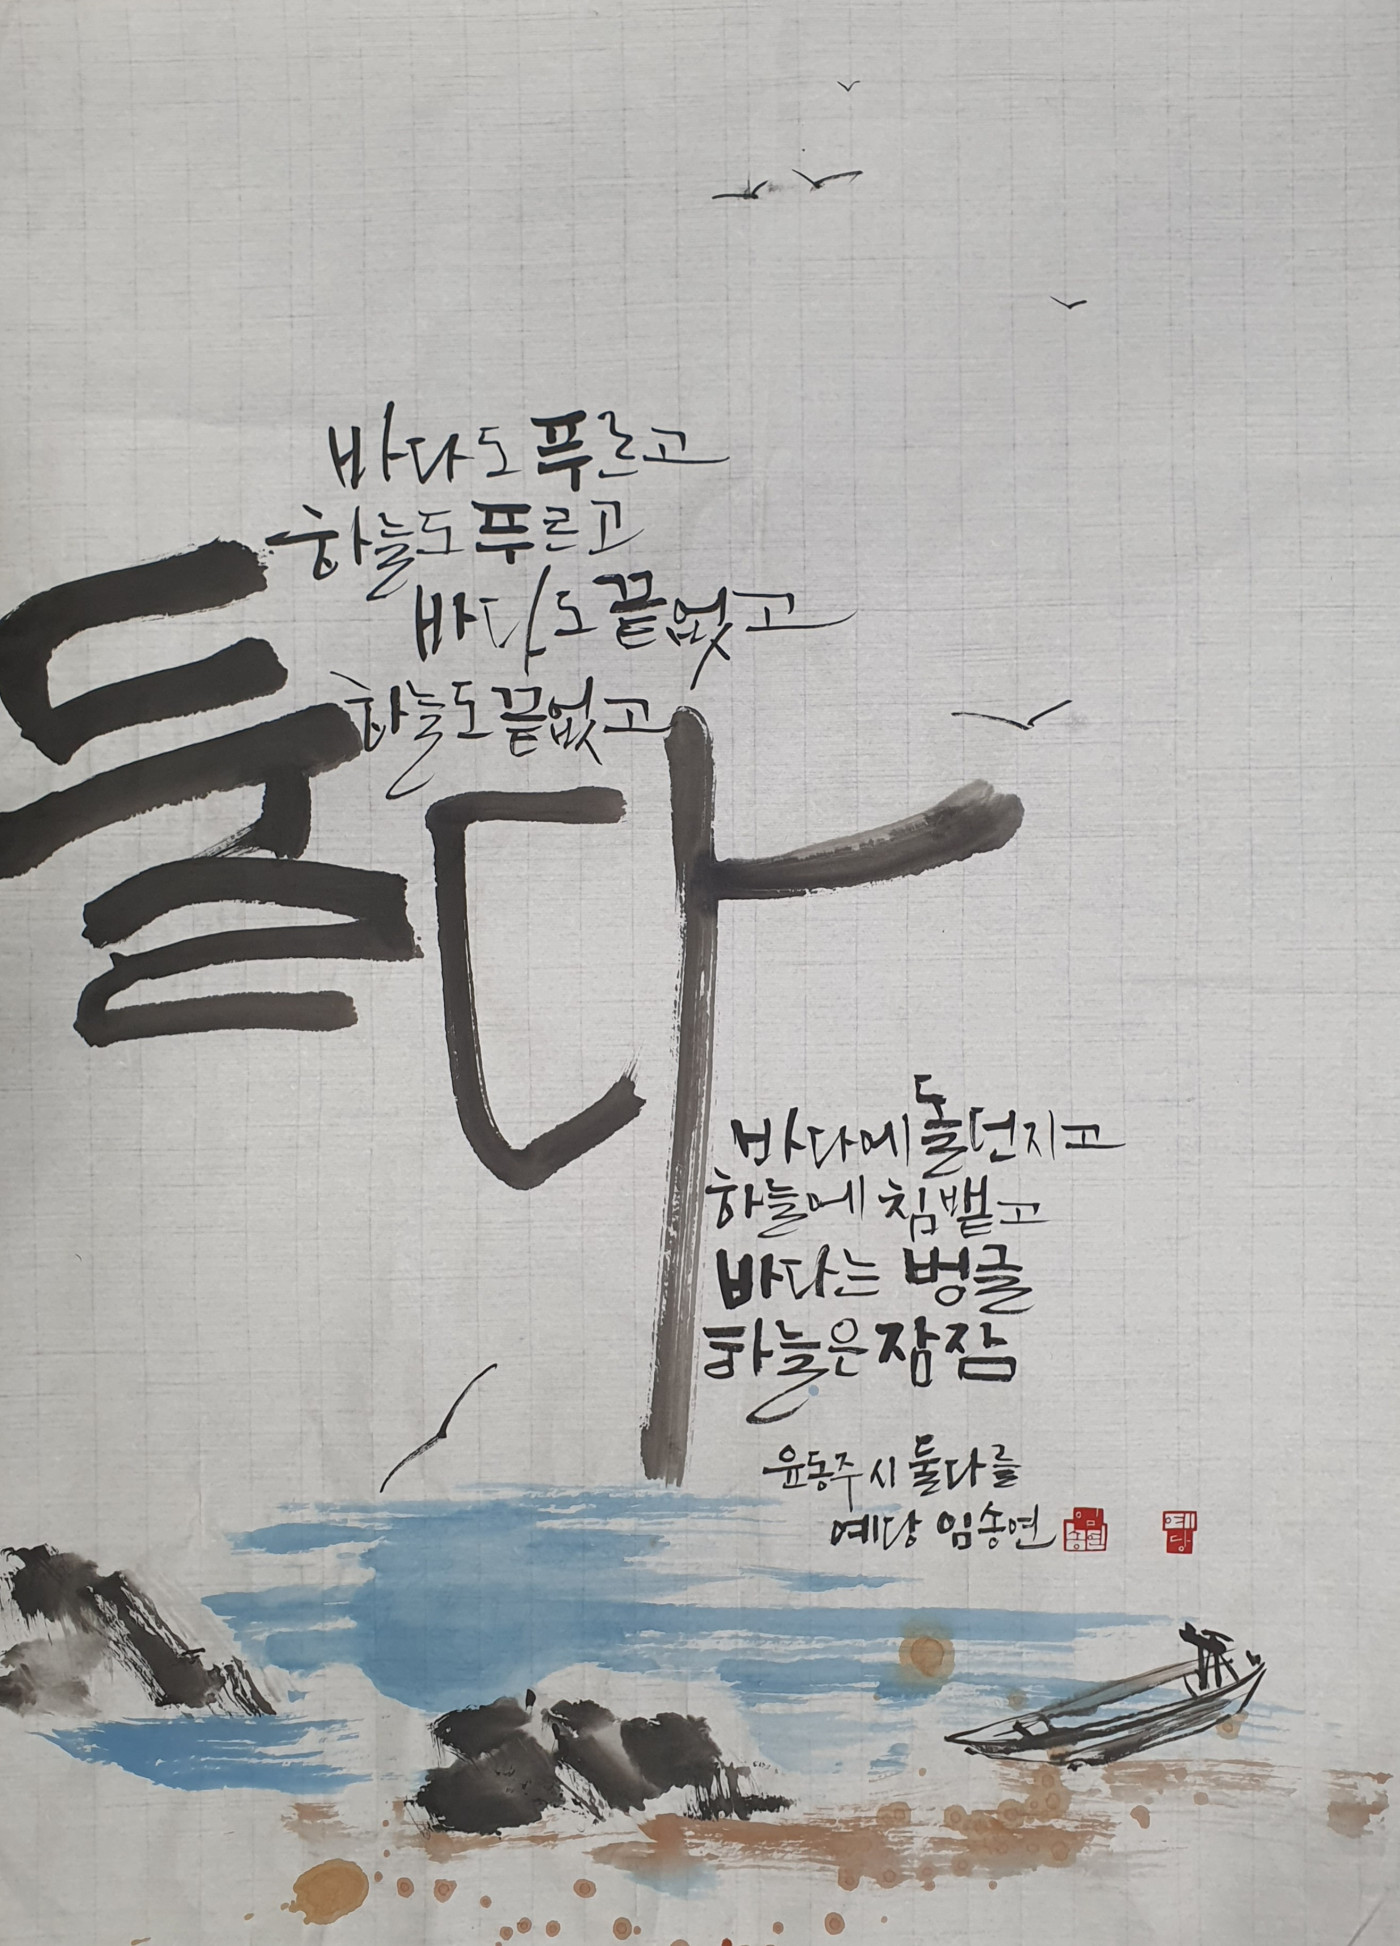 바다도 푸르고
하늘도 푸르고
바다도 끝없고
하늘도 끝없고
둘 다
바다에 돌 던지고
하늘에 침 뱉고
바다는 벙글
하늘은 잠잠
윤동주 시 둘 다를
예당 임송연
임송연
예당